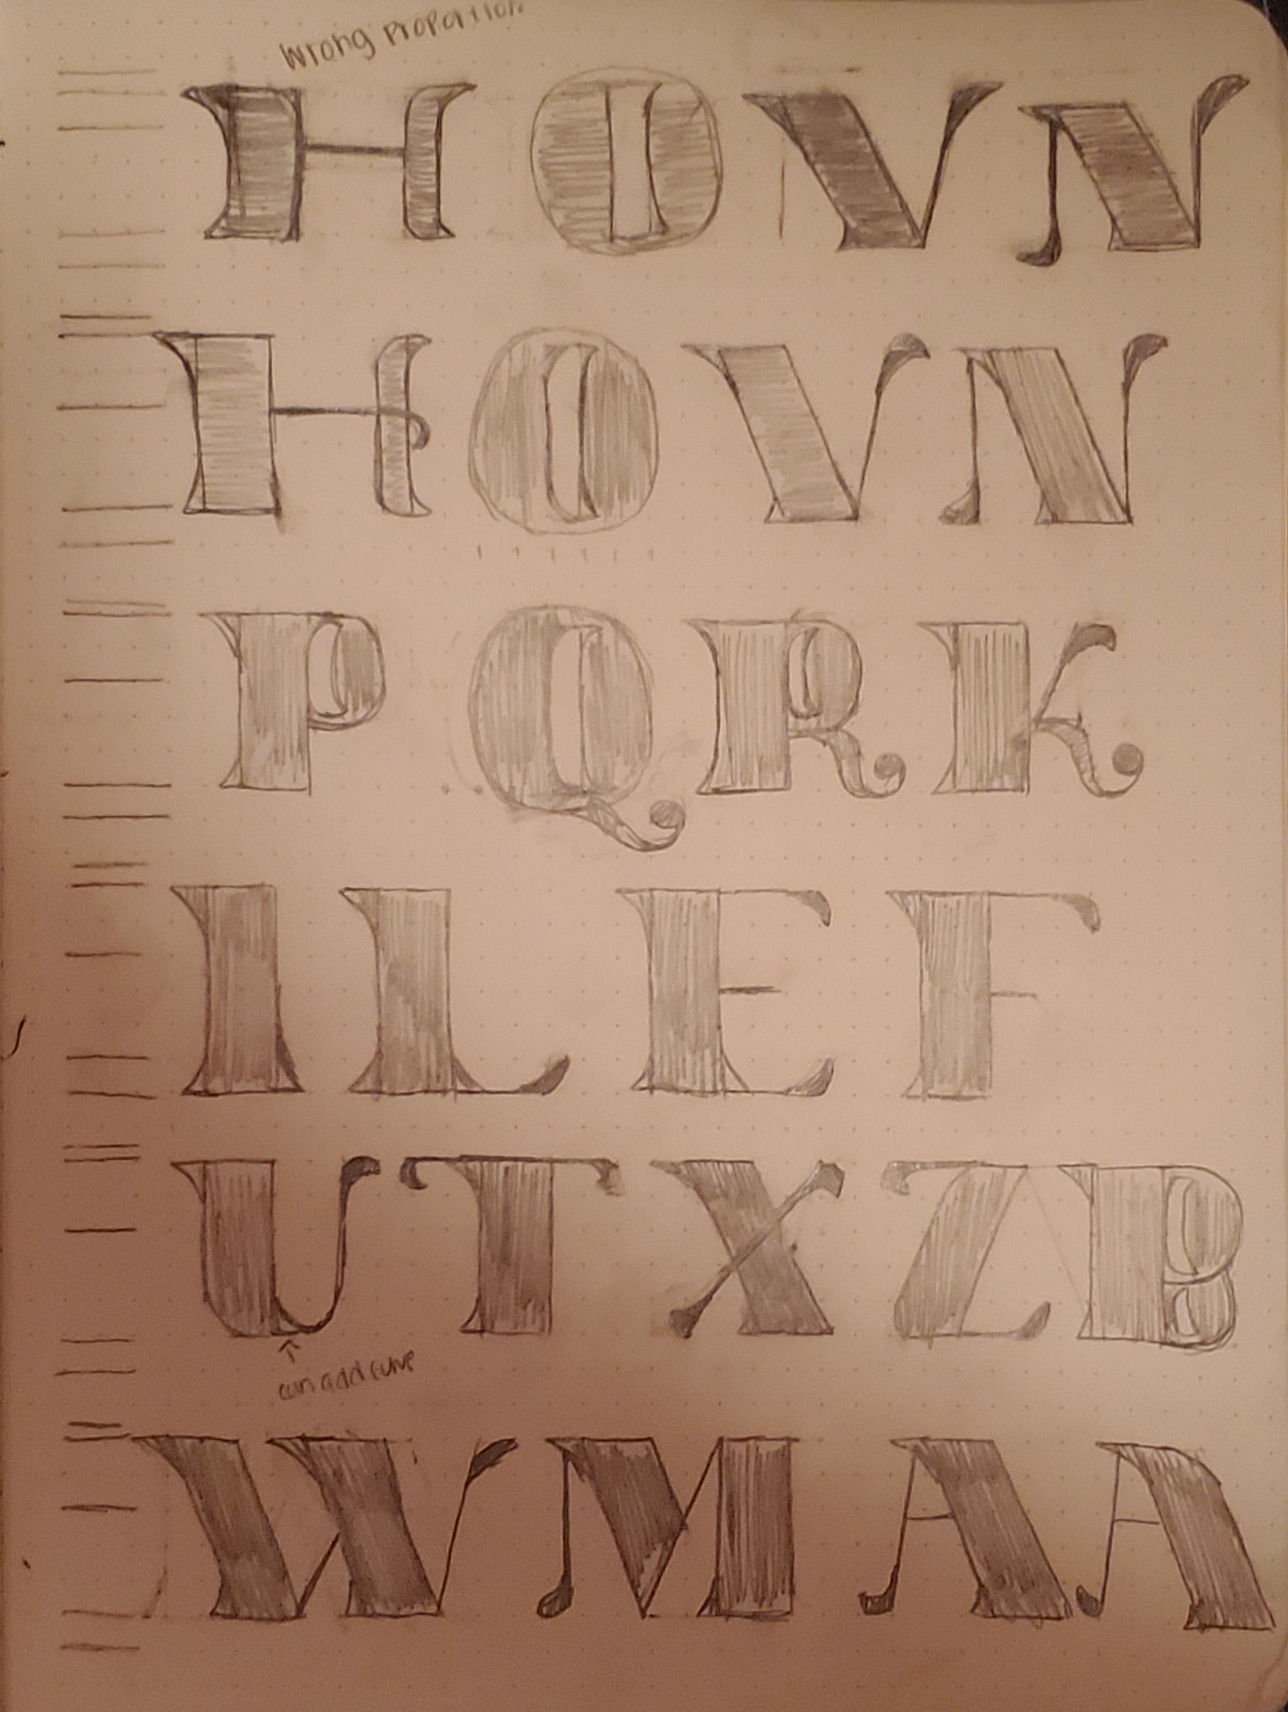 Wrong proportion
HOVN
HOVN
PQRK
ILEF
UTXZB
can add curve
WMAA